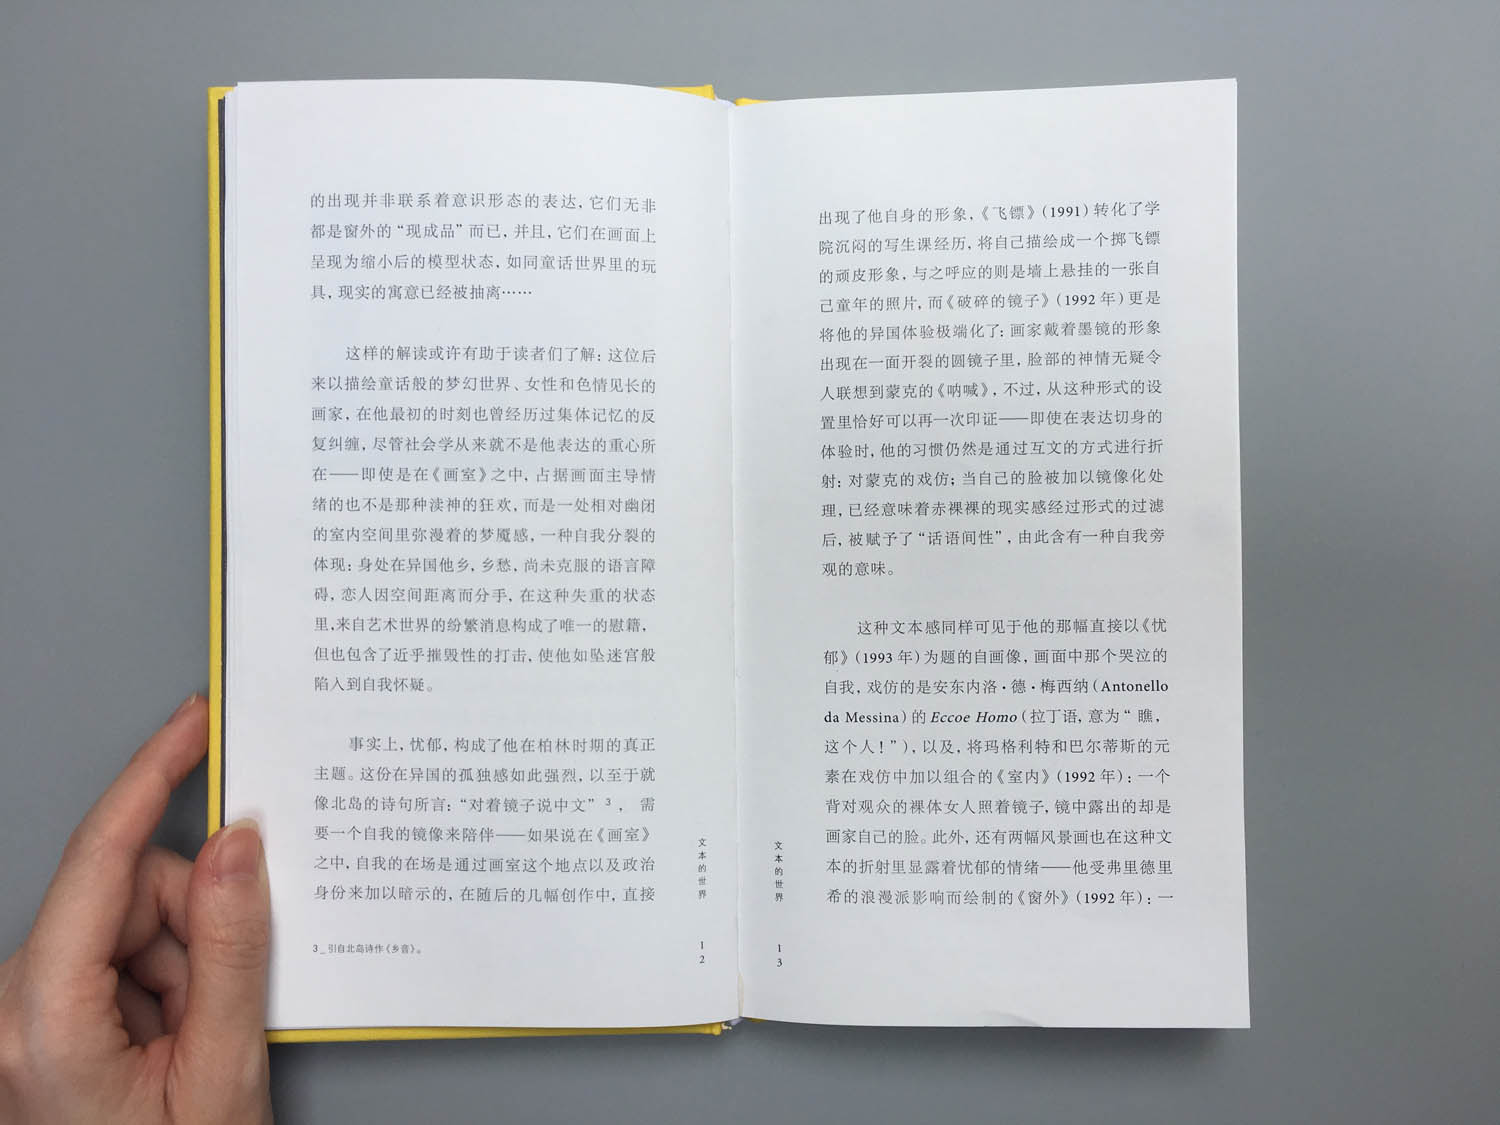 的出现并非联系着意识形态的表达，它们无非
都是窗外的“现成品”而已，并且，它们在画面上
呈现为缩小后的模型状态，如同童话世界里的玩
具，现实的寓意已经被抽离……
这样的解读或许有助于读者们了解：这位后
来以描绘童话般的梦幻世界、女性和色情见长的
画家，在他最初的时刻也曾经历过集体记忆的反
复纠缠，尽管社会学从来就不是他表达的重心所
在——即使是在《画室》之中，占据画面主导情
绪的也不是那种渎神的狂欢，而是一处相对幽闭
的室内空间里弥漫着的梦魇感，一种自我分裂的
体现：身处在异国他乡，乡愁，尚未克服的语言障
碍，恋人因空间距离而分手，在这种失重的状态
里，来自艺术世界的纷繁消息构成了唯一的慰籍，
但也包含了近乎摧毁性的打击，使他如坠迷宫般
陷入到自我怀疑。
事实上，忧郁，构成了他在柏林时期的真正
主题。这份在异国的孤独感如此强烈，以至于就
像北岛的诗句所言：“对着镜子说中文”3，需
要一个自我的镜像来陪伴——如果说在《画室》
之中，自我的在场是通过画室这个地点以及政治
身份来加以暗示的，在随后的几幅创作中，直接
3_引自北岛诗作《乡音》。
文本的世界
12
出现了他自身的形象，《飞镖》（1991）转化了学
院沉闷的写生课经历，将自己描绘成一个掷飞镖
的顽皮形象，与之呼应的则是墙上悬挂的一张自
己童年的照片，而《破碎的镜子》（1992 年）更是
将他的异国体验极端化了：画家戴着墨镜的形象
出现在一面开裂的圆镜子里，脸部的神情无疑令
人联想到蒙克的《呐喊》，不过，从这种形式的设
置里恰好可以再一次印证——即使在表达切身的
体验时，他的习惯仍然是通过互文的方式进行折
射：对蒙克的戏仿；当自己的脸被加以镜像化处
理，已经意味着赤裸裸的现实感经过形式的过滤
后，被赋予了“话语间性”，由此含有一种自我旁
观的意味。
这种文本感同样可见于他的那幅直接以《忧
郁》（1993 年）为题的自画像，画面中那个哭泣的
自我，戏仿的是安东内洛·德·梅西纳（Antonello
da Messina）的 Eccoe Homo（拉丁语，意为“瞧，
这个人！”），以及，将玛格利特和巴尔蒂斯的元
素在戏仿中加以组合的《室内》（1992 年）：一个
背对观众的裸体女人照着镜子，镜中露出的却是
画家自己的脸。此外，还有两幅风景画也在这种文
本的折射里显露着忧郁的情绪——他受弗里德里
希的浪漫派影响而绘制的《窗外》（1992 年）：一
文本的世界
13